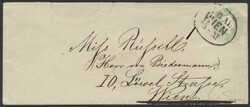 WIEN
Miss Russell
Herr von Biedermann
10, Löwel Strasse
Wien